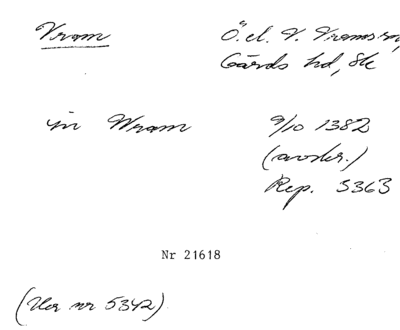 Vram
Ö. el. V. Vrams sn,
Gärds hd, Sk
in Wram
9/10 1382
(avskr.)
Rep. 5363
Nr 21618
(Hor nr 5342)